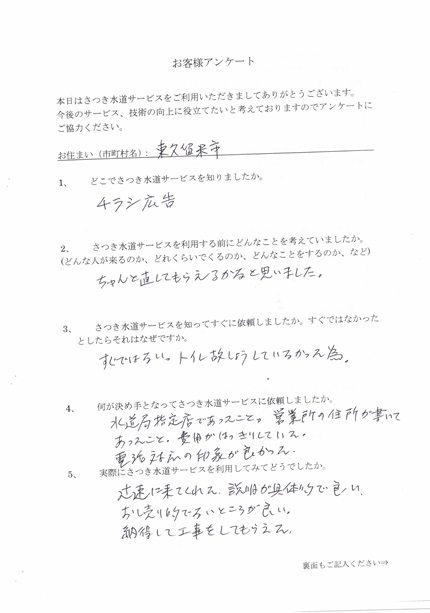 お客様アンケート
本日はさつき水道サービスをご利用いただきましてありがとうございます。
今後のサービス、技術の向上に役立てたいと考えておりますのでアンケートに
ご協力ください。
お住まい（市町村名）： 東久留米市
1、 どこでさつき水道サービスを知りましたか。
チラシ広告
2、 さつき水道サービスを利用する前にどんなことを考えていましたか。
(どんな人が来るのか、どれくらいでくるのか、どんなことをするのか、など)
ちゃんと直してもらえるかなと思いました。
3、 さつき水道サービスを知ってすぐに依頼しましたか。すぐではなかった
としたらそれはなぜですか。
すぐではない。トイレ故しょうしているかった為。
4、 何が決め手となってさつき水道サービスに依頼しましたか。
水道局指定店であったこと。営業所の住所が書いて
あったこと。費用がはっきりしていた。
電話対応の印象が良かった。
5、 実際にさつき水道サービスを利用してみてどうでしたか。
迅速に来てくれた。説明が具体的で良い。
おし売り的でないところが良い。
納得して工事をしてもらえた。
裏面もご記入ください⇒